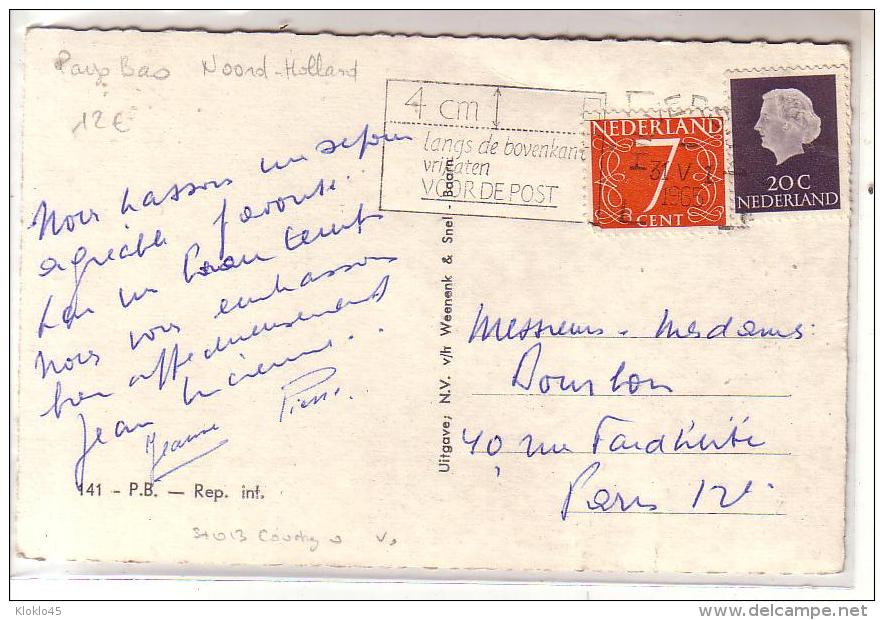 Pays Bas Noord-Holland
12€
4 cm
langs de bovenkant
vrijlaten
VOOR DE POST
NEDERLAND
7
CENT
31 V
20 C
NEDERLAND
Nous passons un séjour
agréable favorisé
par un beau temps
Nous vous embrassons
bien affectueusement
Jean Lucienne..
Jeanne Pierre.
141 - P.B. — Rep. int.
Uitgave; N.V. v/h Weenenk & Snel - Baarn
Messieurs - Mesdames:
Dourlon
40 rue
Paris 12e
Kloklo45
www.delcampe.net